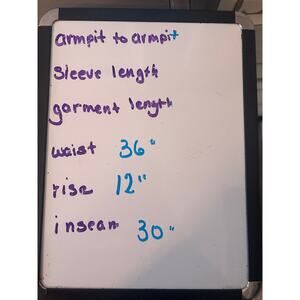 armpit to armpit
sleeve length
garment length
waist 36"
rise 12"
inseam 30"